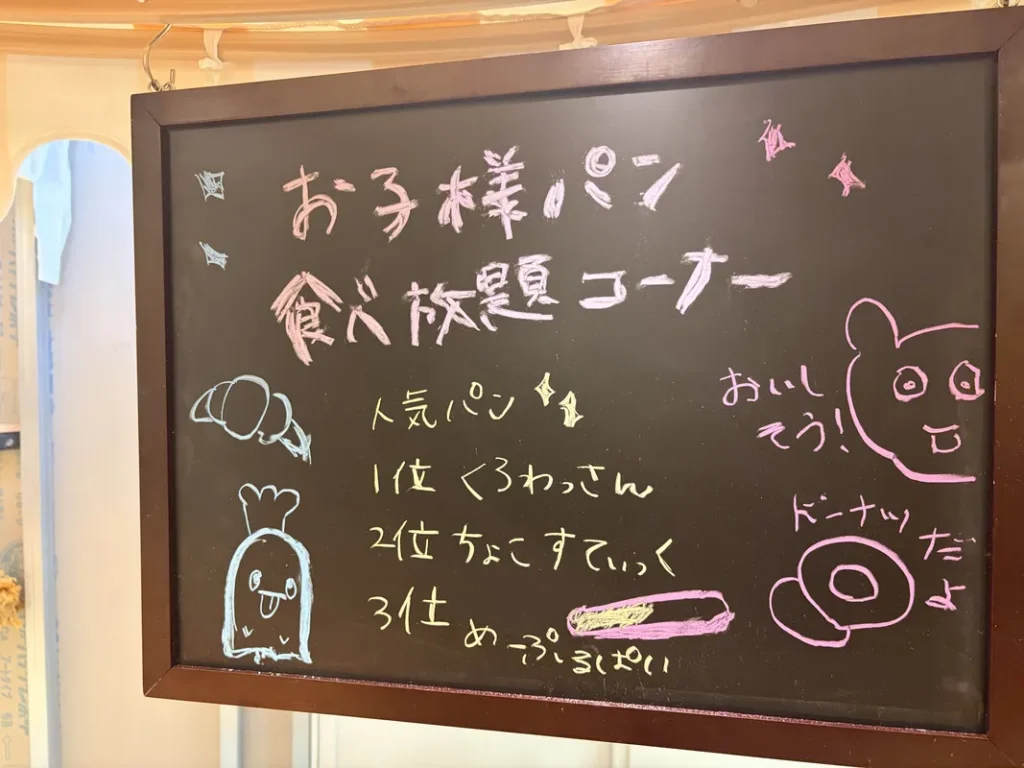 お子様パン
食べ放題コーナー
人気パン
1位 くろわっさん
2位 ちょこすてぃっく
3位 めーぷるぱい
おいし
そう!
ドーナツ
だよ